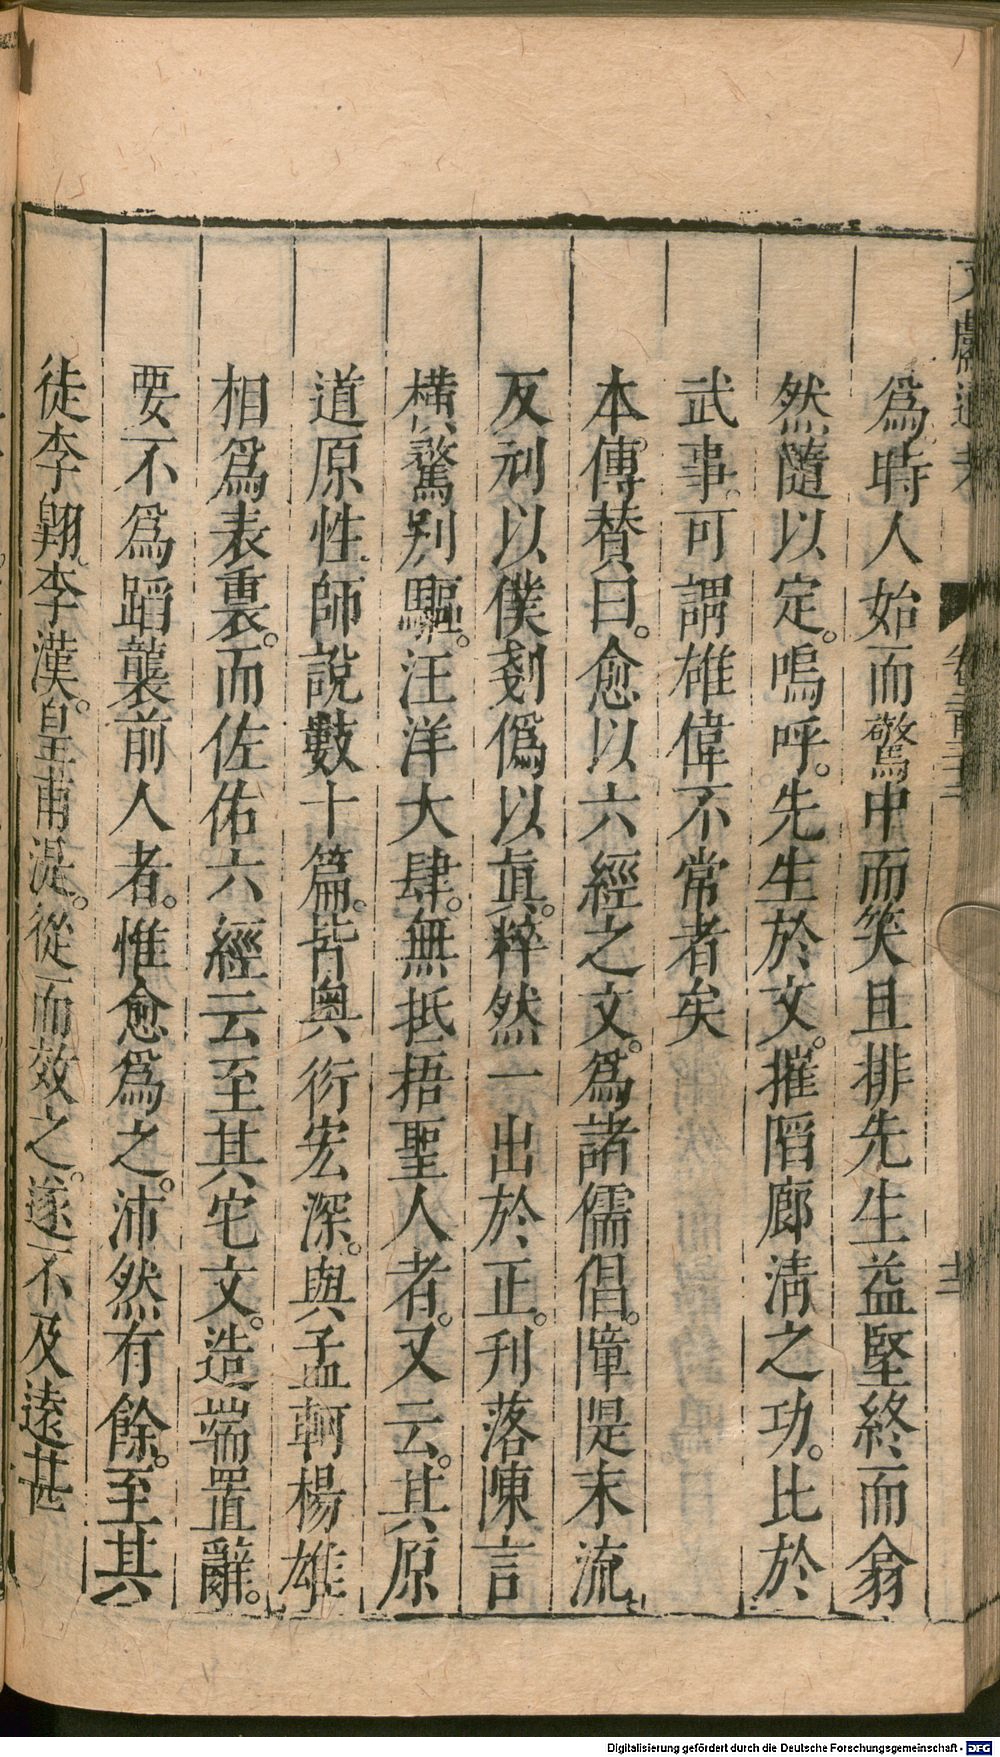 爲時人始而驚中而笑且排先生益堅終而翕
然隨以定。嗚呼。先生於文。摧陷廓淸之功。比於
武事。可謂雄偉不常者矣
本傳贊曰。愈以六經之文。爲諸儒倡。障隄末流
反刓以僕剗僞以眞。粹然一出於正。刋落陳言
橫騖别驅。汪洋大肆。無抵捂聖人者。又云。其原
道原性師說數十篇。皆奥衍宏深。與孟軻楊雄
相爲表裏。而佐佑六經云至其宅文。造端置辭。
要不爲蹈襲前人者。惟愈爲之。沛然有餘。至其
徒李翺。李漢。皇甫湜。從而效之。遂不及遠甚
Digitalisierung gefördert durch die Deutsche Forschungsgemeinschaft - DFG